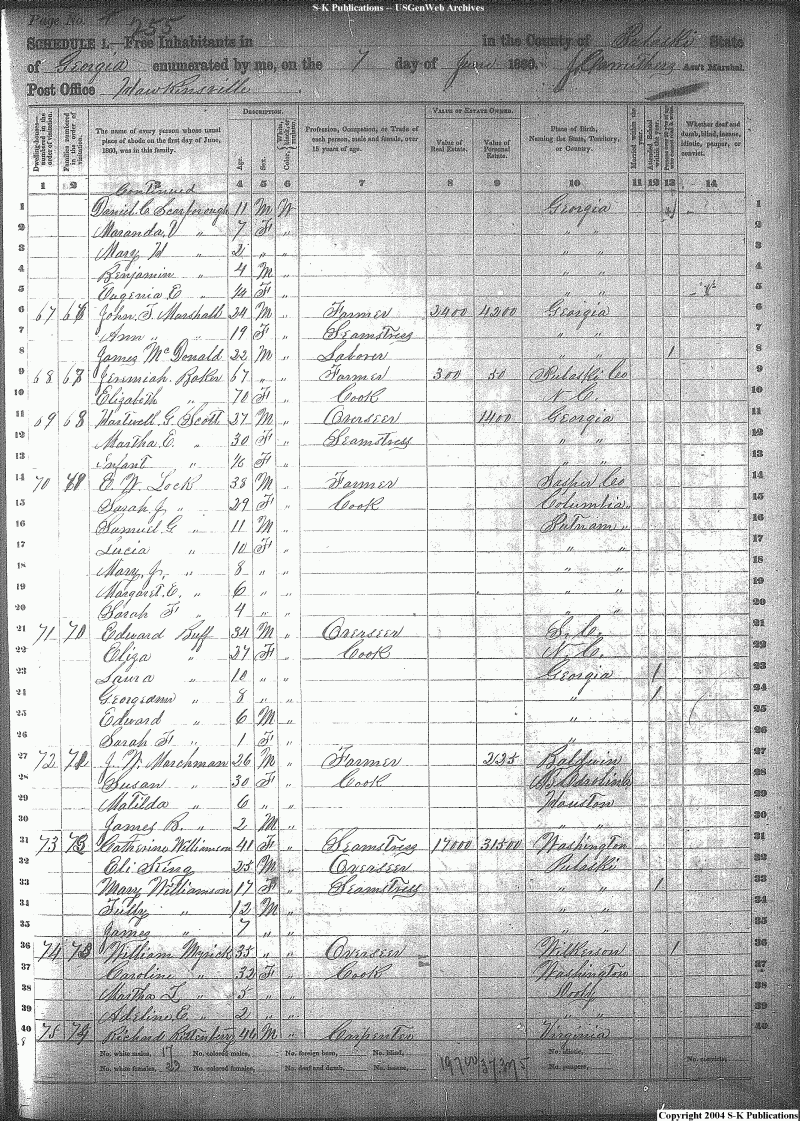 S-K Publications -- USGenWeb Archives
Page No. 255
SCHEDULE 1.—Free Inhabitants in in the County of Pulaski State
of Georgia enumerated by me, on the 7 day of June 1860. Ass't Marshal.
Post Office Hawkinsville
Dwelling-houses— numbered in the order of visitation.
Families numbered in the order of visitation.
The name of every person whose usual place of abode on the first day of June, 1860, was in this family.
DESCRIPTION.
Age.
Sex.
Color, White, black, or mulatto.
Profession, Occupation, or Trade of each person, male and female, over 15 years of age.
VALUE OF ESTATE OWNED.
Value of Real Estate.
Value of Personal Estate.
Place of Birth, Naming the State, Territory, or Country.
Married within the year.
Attended School within the year.
Whether deaf and dumb, blind, insane, idiotic, pauper, or convict.
1 2 3 4 5 6 7 8 9 10 11 12 13 14
Continued
1 Daniel C Scarborough 11 M W Georgia 1
2 Maranda V " 7 F " " " 2
3 Mary H " 2 " " " " 3
4 Benjamin " 4 M " " " 4
5 Eugenia E " F " " " 5
6 67 John S. Marshall 24 M " Farmer 2400 4200 Georgia 6
7 Ann " 19 F " Seamstress " " 7
8 James McDonald 22 M " Laborer " " 1 8
9 68 67 Jeremiah Baker 67 " " Farmer 300 50 Pulaski Co 9
10 Elizabeth " 70 F " Cook N C. 10
11 69 68 Hartwell G. Scott 27 M " Overseer 1400 Georgia 11
12 Martha E. " 30 F " Seamstress " " 12
13 Infant " F " " " 13
14 70 E. W. Lock 38 M " Farmer Jasper Co 14
15 Sarah J. " 29 F " Cook Columbia 15
16 Samuel G " 11 M " Putnam " 16
17 Lucia " 10 F " " " 17
18 Mary J. " 8 " " " " 18
19 Margaret E. " 6 " " " " 19
20 Sarah F " 4 " " " " 20
21 71 70 Edward Buff 34 M " Overseer S. C. 21
22 Eliza " 27 F " Cook N C. 22
23 Laura " 10 " " Georgia 1 23
24 Georgeann " 8 " " " 1 24
25 Edward " 6 M " " 25
26 Sarah F " 1 F " "
27 72 J. W. Marchman 26 M " Farmer 225 Baldwin 27
28 Susan " 30 F " Cook Carolina 28
29 Matilda " 6 " " Houston 29
30 James B. " 2 M " " " 30
31 73 Catherine Williamson 41 F " Seamstress 17000 31500 Washington 31
32 Eli King 25 M " Overseer Pulaski 32
33 Mary Williamson 17 F " Seamstress " " 1 33
34 Tully " 12 M " " " 34
35 James " 7 " " " " 35
36 74 William Myrick 35 " " Overseer Wilkerson 1 36
37 Caroline " 32 F " Cook Washington 37
38 Martha L " 5 " " Dooly 38
39 Adeline E. " 2 " " " 39
40 75 74 Richard Rittenberry 46 M " Carpenter Virginia 40
No. white males, 17 No. colored males, No. foreign born, No. blind, No. idiotic, No. convicts,
No. white females, 23 No. colored females, No. deaf and dumb, No. insane, 19700 37375 No. paupers,
Copyright 2004 S-K Publications